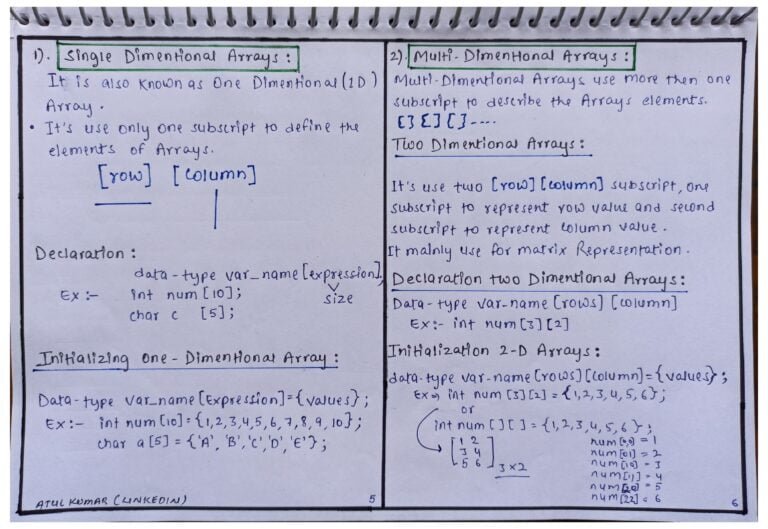 1). Single Dimentional Arrays :
It is also known as One Dimentional (1D)
Array.
• It's use only one subscript to define the
elements of Arrays.
[row] [column]
Declaration :
data-type var_name [expression];
size
Ex :- int num [10];
char c [5];
Initializing One-Dimentional Array :
Data-type var_name [Expression] = {values} ;
Ex :- int num [10] = {1,2,3,4,5,6,7,8,9,10} ;
char a[5] = {'A', 'B', 'C', 'D', 'E'} ;
ATUL KUMAR (LINKEDIN)
5
2). Multi-Dimentional Arrays :
Multi-Dimentional Arrays use more then one
subscript to describe the Arrays elements.
[] [] [] ----
Two Dimentional Arrays :
It's use two [row] [column] subscript, one
subscript to represent row value and second
subscript to represent column value.
It mainly use for matrix Representation.
Declaration two Dimentional Arrays :
Data-type var-name [rows] [column]
Ex:- int num [3] [2]
Initialization 2-D Arrays :
data-type var-name [rows] [column] = {values} ;
Ex → int num [3] [2] = {1,2,3,4,5,6} ;
or
int num [ ] [ ] = {1,2,3,4,5,6} ;
1 2
3 4
5 6
3×2
num [0,0] = 1
num [01] = 2
num [10] = 3
num [1,] = 4
num [20] = 5
num [22] = 6
6